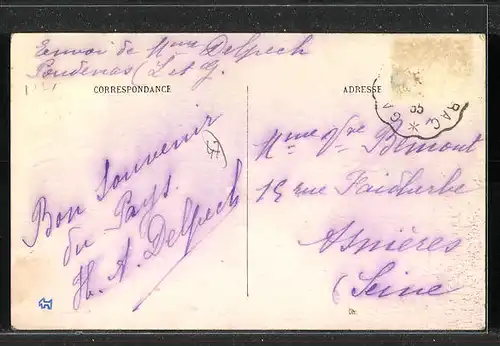 Envoi de Mme Delpech
Poudenas (L et G.
CORRESPONDANCE
Bon Souvenir
du Pays.
H. A. Delpech
47
ADRESSE
Mme Vve Bémont
15 rue Faidherbe
Asnières
(Seine